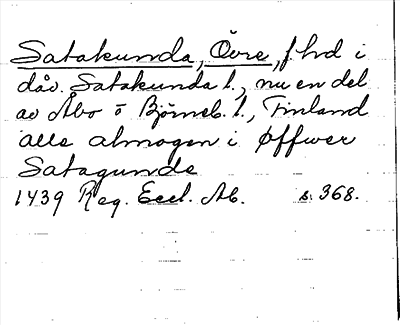 Satakunda, Övre, f. hd i
dåv. Satakunda l., nu en del
av Åbo o Björneb. l., Finland
alle almogen i Øffwer
Satagunde
1439 Reg. Eccl. Ab. s. 368.